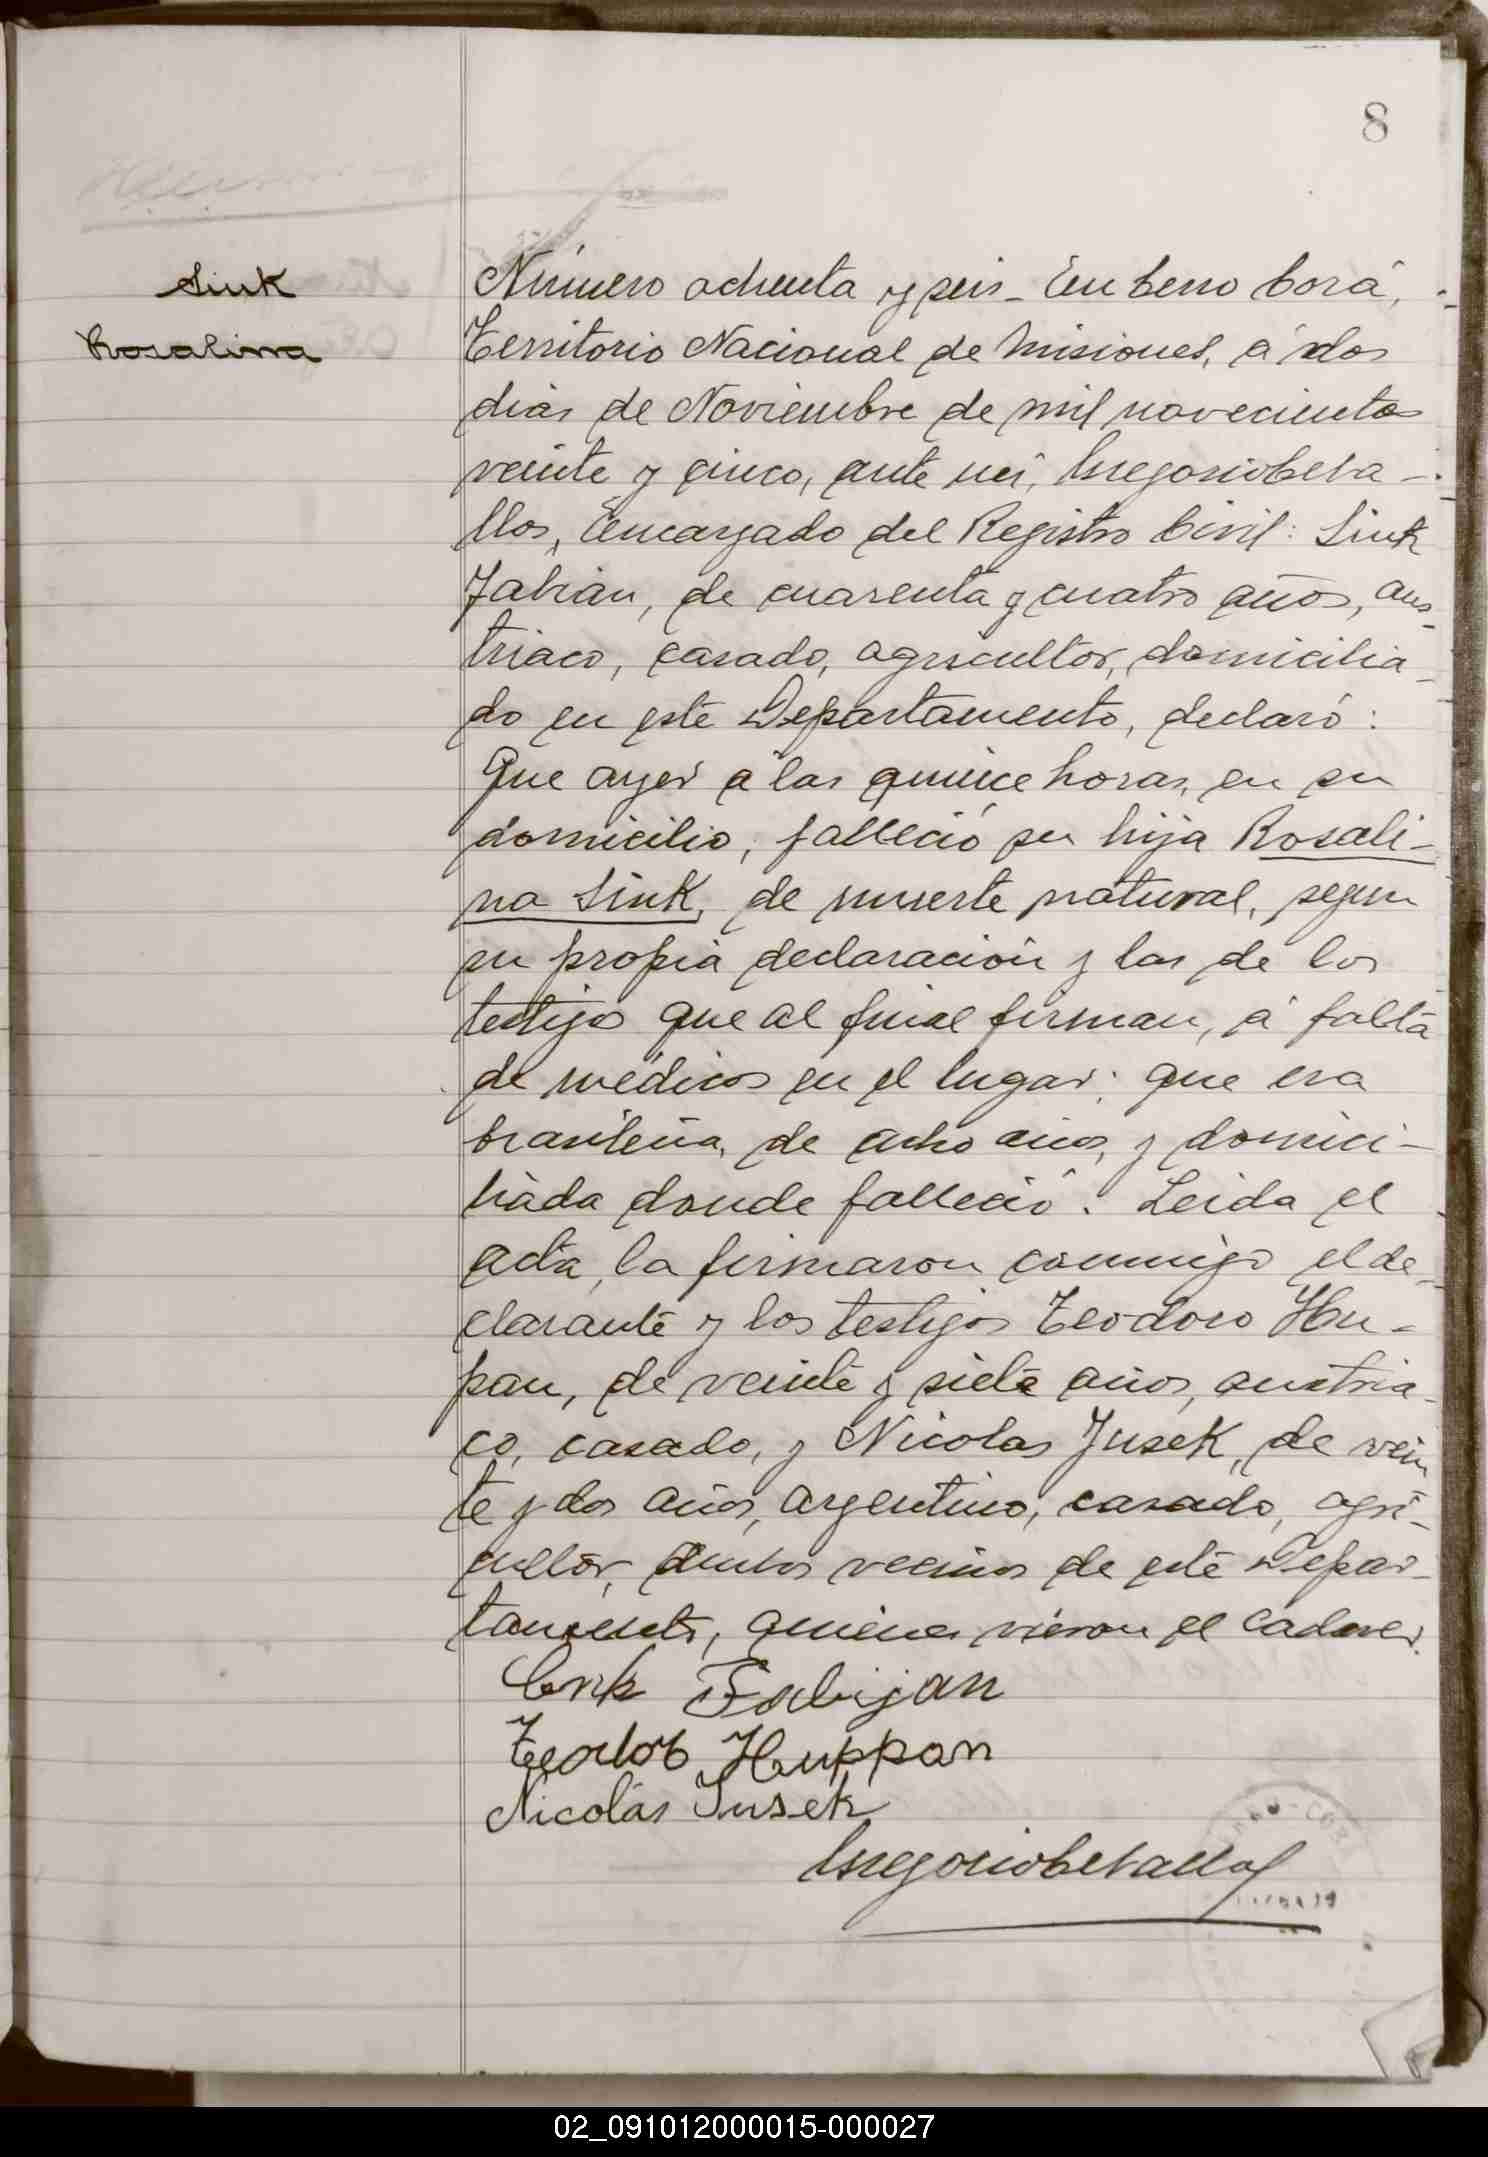 8
Sink
Rosalina
Número ochenta y seis - En Cerro Corá,
Territorio Nacional de Misiones, á dos
dias de Noviembre de mil novecientos
veinte y cinco, ante mí, Gregorio Ceva-
llos, Encargado del Registro Civil: Sink
Fabián, de cuarenta y cuatro años, aus-
triaco, casado, agricultor, domicilia-
do en este Departamento, declaró:
Que ayer a las quince horas, en su
domicilio, falleció su hija Rosali-
na Sink, de muerte natural, segun
su propia declaración y las de los
testigos que al final firman, á falta
de médicos en el lugar; que era
brasileña, de ocho años, y domici-
liada donde falleció. Leida el
acta, la firmaron conmigo el de-
clarante y los testigos Teodoro Hu-
pan, de veinte y siete años, austria-
co, casado, y Nicolas Jusek, de vein
te y dos años, argentino, casado, agri-
cultor, ambos vecinos de este Depar-
tamento, quienes vieron el cadaver.
Fabijan
Teodor Huppan
Nicolás Jusek
Gregorio Cevallos
02_091012000015-000027